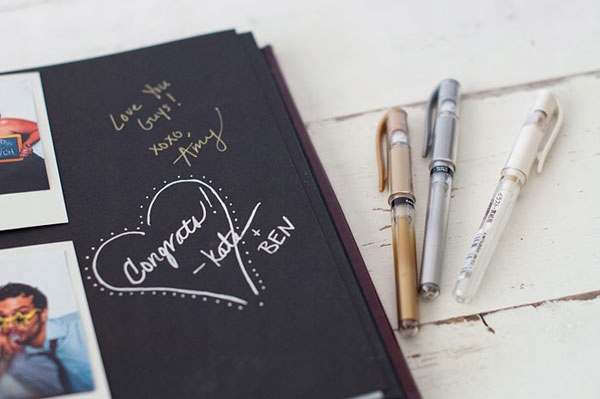 Love You
Guys!
xoxo,
Amy
Congrats!
- Kate
+ BEN